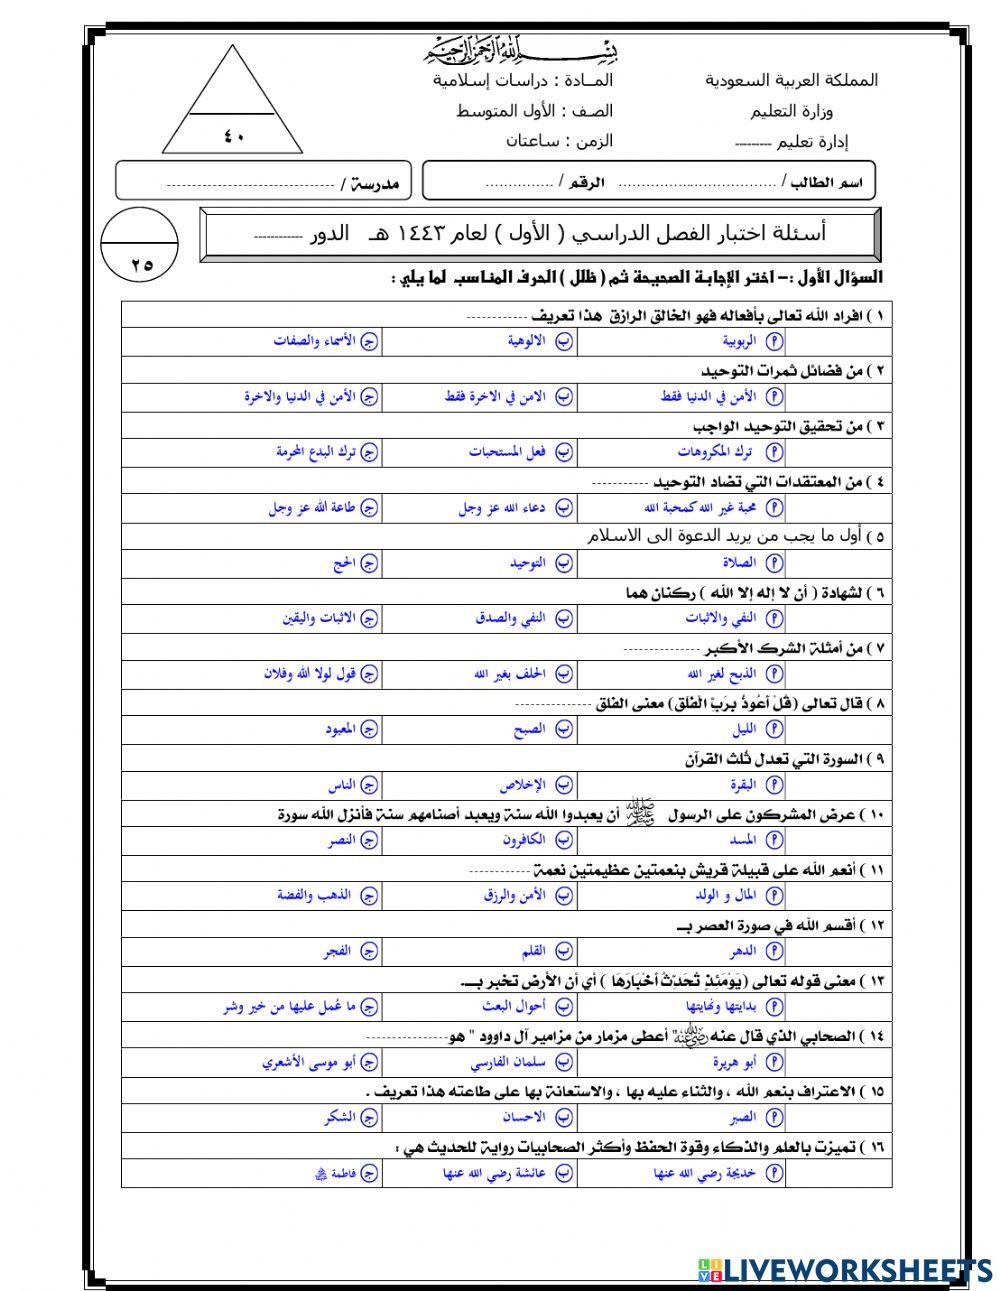 بسم الله الرحمن الرحيم
المملكة العربية السعودية
وزارة التعليم
إدارة تعليم ---------
المـادة : دراسات إسلامية
الصف : الأول المتوسط
الزمن : ساعتان
٤٠
اسم الطالب / ................................... الرقم / ...............
مدرسة / --------------------------------
أسئلة اختبار الفصل الدراسي ( الأول ) لعام ١٤٤٣ هـ الدور ------------
٢٥
السؤال الأول :– اختر الإجابة الصحيحة ثم ( ظلل ) الحرف المناسب لما يلي :
١ ) افراد الله تعالى بأفعاله فهو الخالق الرازق هذا تعريف ------------
أ الربوبية ب الالوهية ج الأسماء والصفات
٢ ) من فضائل ثمرات التوحيد
أ الأمن في الدنيا فقط ب الامن في الاخرة فقط ج الأمن في الدنيا والاخرة
٣ ) من تحقيق التوحيد الواجب
أ ترك المكروهات ب فعل المستحبات ج ترك البدع المحرمة
٤ ) من المعتقدات التي تضاد التوحيد -----------
أ محبة غير الله كمحبة الله ب دعاء الله عز وجل ج طاعة الله عز وجل
٥ ) أول ما يجب من يريد الدعوة الى الاسلام
أ الصلاة ب التوحيد ج الحج
٦ ) لشهادة ( أن لا إله إلا الله ) ركنان هما
أ النفي والاثبات ب النفي والصدق ج الاثبات واليقين
٧ ) من أمثلة الشرك الأكبر ---------------
أ الذبح لغير الله ب الحلف بغير الله ج قول لولا الله وفلان
٨ ) قال تعالى (قُلْ أَعُوذُ بِرَبِّ الْفَلَقِ) معنى الفلق ---------------
أ الليل ب الصبح ج المعبود
٩ ) السورة التي تعدل ثُلث القرآن
أ البقرة ب الإخلاص ج الناس
١٠ ) عرض المشركون على الرسول ﷺ أن يعبدوا الله سنة ويعبد أصنامهم سنة فأنزل الله سورة
أ المسد ب الكافرون ج النصر
١١ ) أنعم الله على قبيلة قريش بنعمتين عظيمتين نعمة ------------
أ المال و الولد ب الأمن والرزق ج الذهب والفضة
١٢ ) أقسم الله في صورة العصر بـ
أ الدهر ب القلم ج الفجر
١٣ ) معنى قوله تعالى (يَوْمَئِذٍ تُحَدِّثُ أَخْبَارَهَا ) أي أن الأرض تخبر بـ.
أ بدايتها ونهايتها ب أحوال البعث ج ما عُمل عليها من خير وشر
١٤ ) الصحابي الذي قال عنه رضي الله عنه " أعطى مزمار من مزامير آل داوود " هو----------------
أ أبو هريرة ب سلمان الفارسي ج أبو موسى الأشعري
١٥ ) الاعتراف بنعم الله ، والثناء عليه بها ، والاستعانة بها على طاعته هذا تعريف .
أ الصبر ب الاحسان ج الشكر
١٦ ) تميزت بالعلم والذكاء وقوة الحفظ وأكثر الصحابيات رواية للحديث هي :
أ خديجة رضي الله عنها ب عائشة رضي الله عنها ج فاطمة
LIVEWORKSHEETS